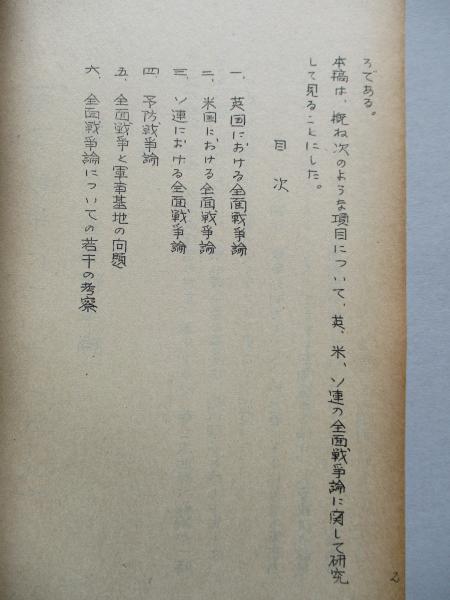 ろである。
本稿は、概ね次のような項目について、英、米、ソ連の全面戦争論に関して研究
して見ることにした。
目次
一、英国における全面戦争論
二、米国における全面戦争論
三、ソ連における全面戦争論
四、予防戦争論
五、全面戦争と軍事基地の問題
六、全面戦争論についての若干の考察
2